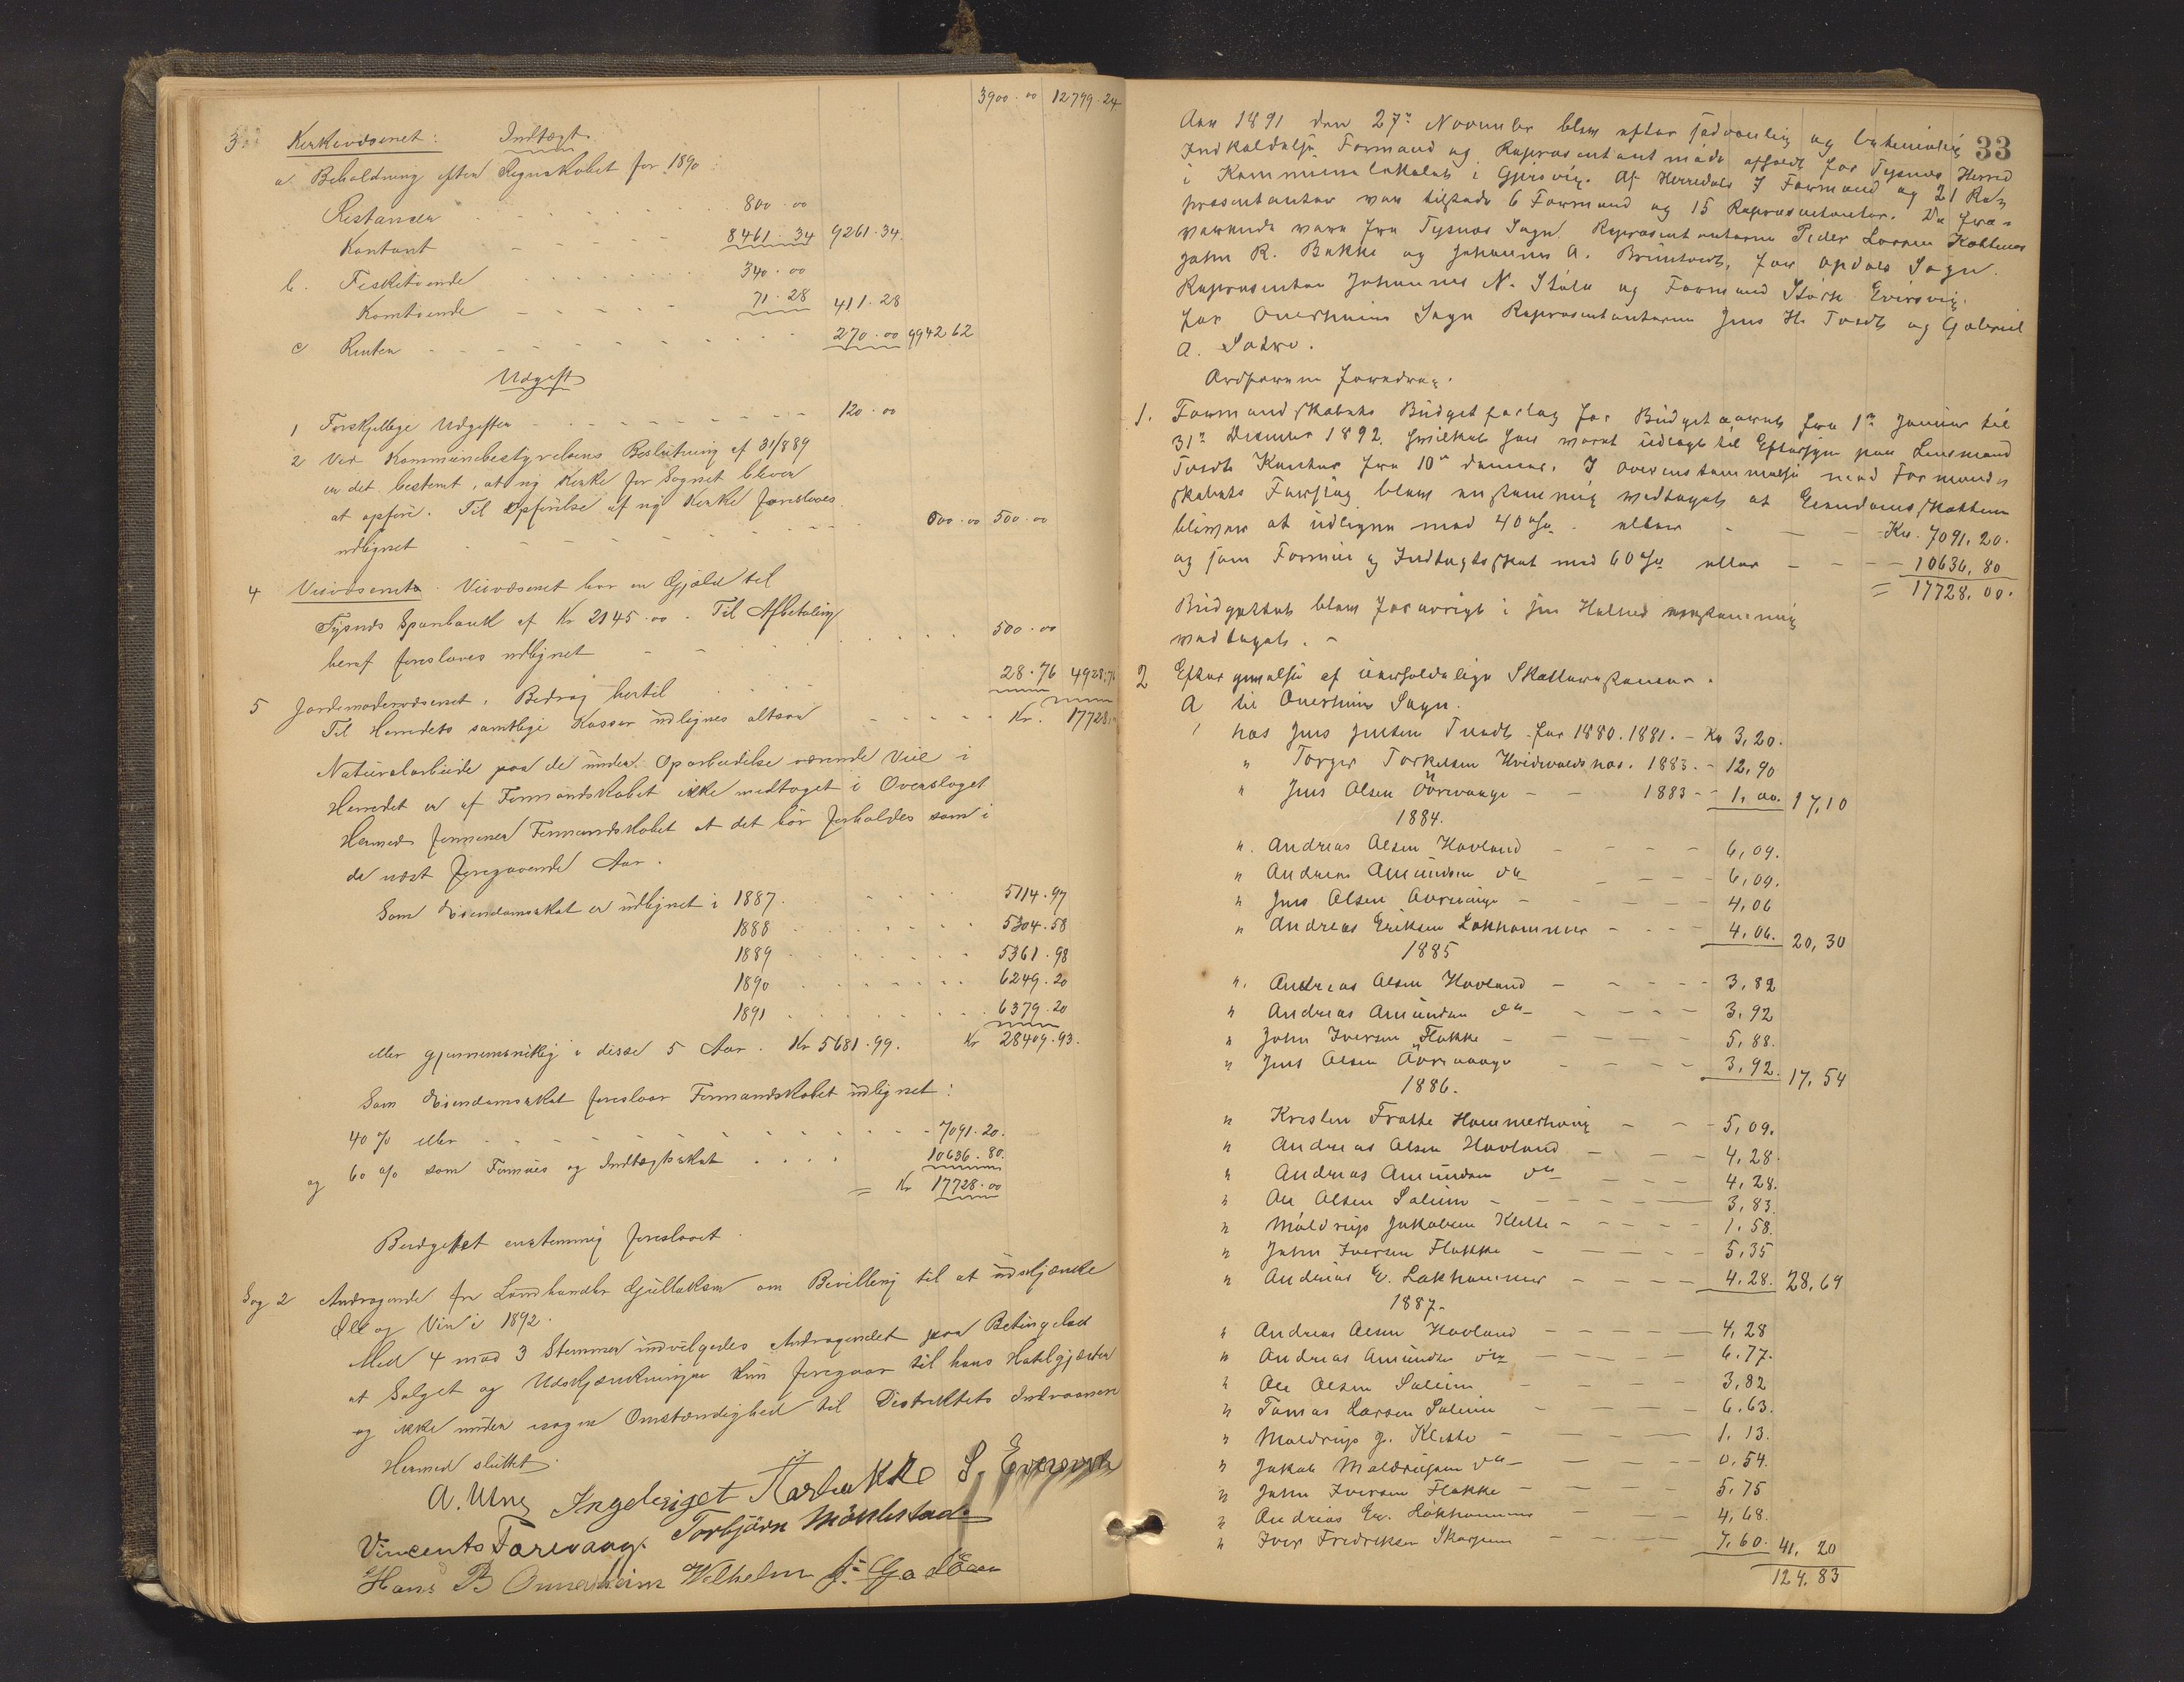 3900.00 12799.24
3 Kirkevæsenet: Indtægt
a Beholdning efter Regnskabet for 1890:
Restancer 800.00
Kontant 8461.34 9261.34
b. Fisketiende 340.00
Korntiende 71.28 411.28
c Renter 270.00 9942.62
Udgift
1 Forskjellige Udgifter 120.00
2 Ved Kommunebestyrelsens Beslutning af 31/889
er det bestemt, at ny Kirke for Sognet bliver
at opføre. Til Opførelse af ny Kirke foreslaaes
udlignet 500.00 500.00
4 Veivæsenet. Veivæsenet har en Gjæld til
Tysnæs Sparebank af Kr 2145.00. Til Afbetaling
heraf foreslaaes udlignet 500.00
5 Jordemodervæsenet. Bidrag hertil 28.76 4928.76
Til Herredets samtlige Kasser udlignes altsaa Kr. 17728
Naturalarbeide paa de under Oparbeidelse værende Veie i
Herredet er af Formandskabet ikke medtaget i Overslaget
Hermed formener Formandskabet at det bør forholdes som i
de næst foregaaende Aar.
Som Eiendomsskat er udlignet i 1887 5114.97
1888 5304.58
1889 5361.98
1890 6249.20
1891 6379.20
eller gjennemsnitlig i disse 5 Aar. Kr 5681.99. Kr 28409.93.
Som Eiendomsskat foreslaar Formandskabet udlignet:
40 % eller 7091.20.
og 60 % som Formues og Indtægtsskat 10636.80.
= Kr 17728.00
Budgettet enstemmig foreslaaet.
Sag 2 Andragende fra Landhandler Gullaksen om Bevilling til at udskjænke
Øl og Vin i 1892.
Med 4 mod 3 Stemmer indvilgedes Andragendet paa Betingelse
at Salget og Udskjænkningen kun foregaar til hans Hotelgjæster
og ikke under nogen Omstændighed til Distriktets Indvaanere
Hermed sluttet.
A. Uthug Ingebrigt Flarbakke S. Eversvik
Vincents Farevaag. Torbjørn Møklestad
Hans B Onnerheim Vilhelm
33
Aar 1891 den 27de November blev efter sædvanlig og betimelig
Indkaldelse Formand og Repræsentantmøde afholdt for Tysnæs Herred
i Kommunelokalet i Gjersvig. Af Herredets 7 Formænd og 21 Re-
præsentanter var tilstede 6 Formænd og 15 Repræsentanter. De fra-
værende vare fra Tysnæs Sogn Repræsentanterne Peder Larsen Kaltenæs
John R. Bakke og Johannes A. Brüntvedt, for Opdals Sogn.
Repræsentant Johannes N. Støle og Formand Størk Eversvig.
for Onerheims Sogn Repræsentanterne Jens H. Tvedt og Gabriel
A. Sætre.
Ordføreren foredrog.
1. Formandskabets Budgetforslag for Budgetaaret fra 1ste Januar til
31te Decmber 1892, hvilket har været udlagt til Eftersyn paa Lensmand
Tvedts Kontor fra 10de dennes. I Overensstemmelse med Formand-
skabets Forslag blev enstemmig vedtaget at Eiendomsskatten
bliver at udligne med 40 % eller Kr. 7091.20.
og som Formue og Indtægtsskat med 60 % eller 10636,80
= 17728.00.
Budgettet blev forøvrigt i sin Helhed enstemmig
vedtaget. -
2 Eftergivelse af uerholdelige Skatterestancer.
A til Onerheims Sogn.
hos Jens Jensen Tvedt for 1880. 1881. - Kr 3,20.
" Torger Torkelsen Hvidevaldsnæs. 1883. - 12,90
" Jens Olsen Øvrevaage 1883 - 1,00. 17,10
1884.
". Andreas Olsen Hovland 6,09.
" Andreas Amundsen do 6,09.
" Jens Olsen Øvrevaage 4,06
" Andreas Eriksen Lokhammer 4,06. 20,30
1885
". Andreas Olsen Hovland 3,82
" Andreas Amundsen do 3,92
" John Iversen Flakke 5,88.
" Jens Olsen Øvrevaage 3,92. 17,54
1886.
" Kristen Frotte Hammerhaug 5,09.
" Andreas Olsen Hovland 4,28.
" Andreas Amundsen do 4,28.
" Ole Olsen Soleim 3,83.
" Maldrup Jakobsen Klette 1.58.
" John Iversen Flakke 5,35
" Andreas E. Lokhammer 4,28. 28,69
1887.
" Andreas Olsen Hovland 4,28
" Andreas Amundsen do 6.77.
" Ole Olsen Soleim 3,82
" Tomas Larsen Soleim 6.63.
" Maldrup J. Klette 1.13.
" Jakob Maldrupsen do 0,54.
" John Iversen Flakke 5.75
" Andreas Er. Lokhammer 4,68.
" Iver Fredriksen Skarpen 7,60. 41,20
124.83